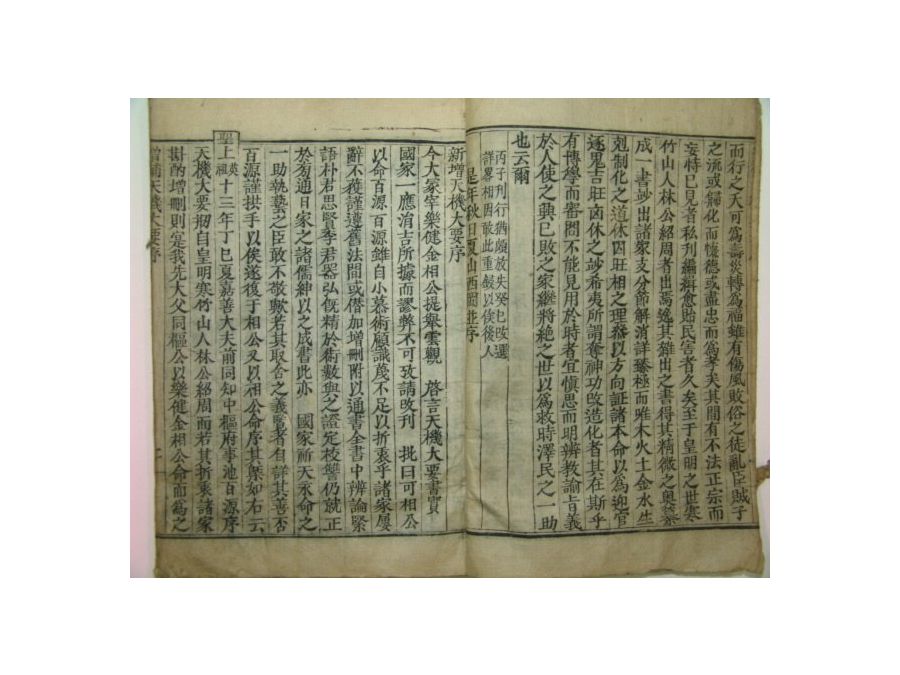 而行之天可為壽災轉為福雖有傷風敗俗之徒亂臣賊子
之流或歸化而懷德或盡忠而為孝矣其間有不法正宗而
妄特已見者私刊編緝愈貽民害者久矣至于皇明之世寒
竹山人林公紹周者出焉 其雜出之書得其精微之奧
成一書 出諸家支分節解消詳臻極而唯木火土金水生
剋制化之道休囚旺相之理 以方向証諸本命以為迎官
逐鬼吉旺凶休之 希夷所謂奪神功改造化者其在斯乎
有博學而審問不能見用於時者宜慎思而明辨教諭旨義
於人使之興已敗之家繼將絕之世以為救時澤民之一助
也云爾
丙子刊行 頗放失癸巳改選
詳畧相因敢此重 以俟後人
是年秋日夏山西 序
新增天機大要序
今大冢宰樂健金相公提舉雲觀 啓言天機大要書實
國家一應涓吉所據而謬弊不可攷請改刊 批曰可相公
以命百源百源雖自小慕術顧識蔑不足以折衷乎諸家屢
辭不獲謹遵舊法間或僣加增刪附以通書全書中辨論緊
語朴君思賢李君器弘旣精於術數與之證定校讐仍就正
於 通日家之諸儒紳以之成書此亦 國家祈天永命之
一助執藝之臣敢不敬歟若其取舍之義覽者自詳其善否
百源謹拱手以俟遂復于相公又以相公命序其槩如右云
聖上英祖十三年丁巳夏嘉善大夫前同知中樞府事池日源序
天機大要 自皇明寒竹山人林公紹周而若其折衷諸家
斟酌增刪則寔我先大父同樞公以樂健金相公命而為之
增補天機大要序